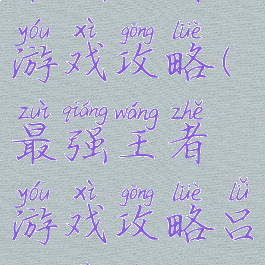 yóu xì gōng lüè
游戏攻略(
zuì qiáng wáng zhě
最强王者
yóu xì gōng lüè lǚ
游戏攻略吕